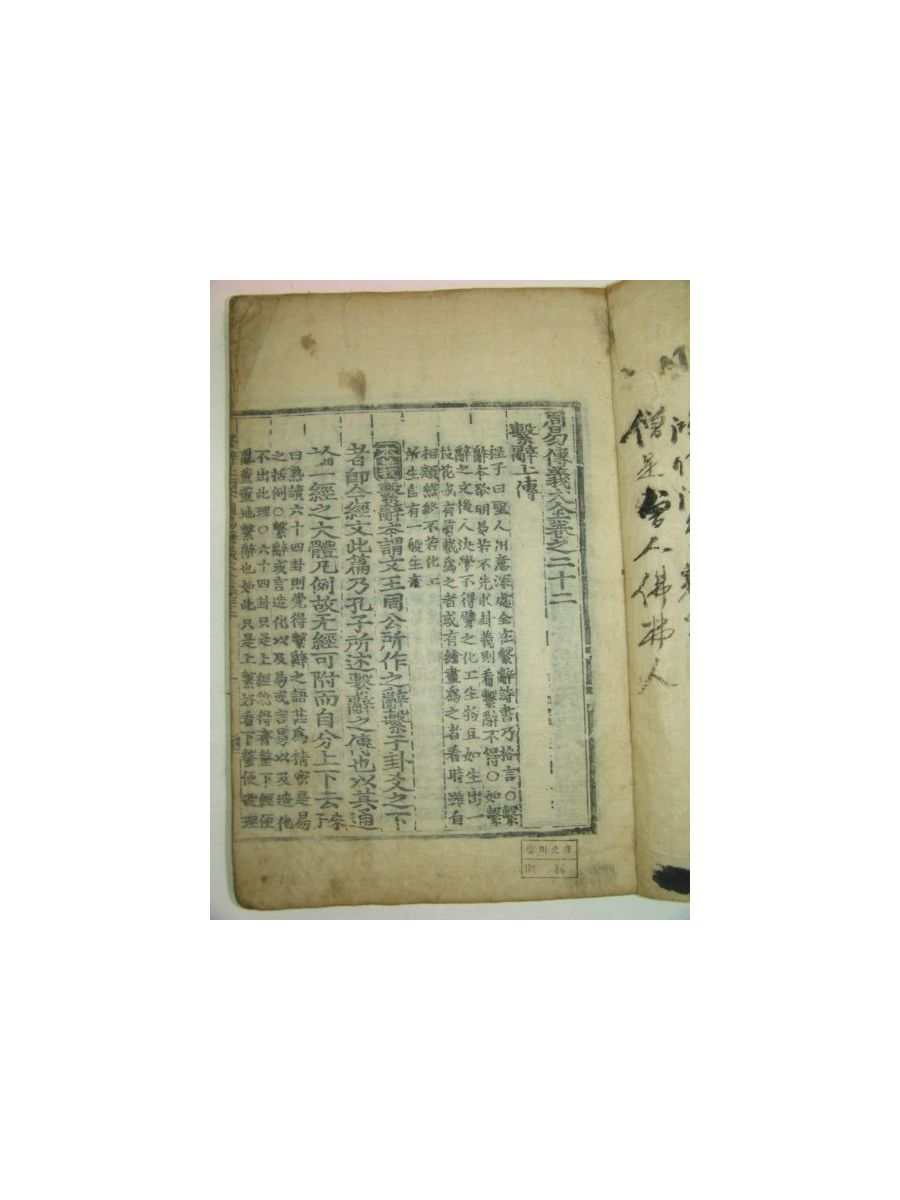 僧是曾人佛弗人
周易傳義大全卷之二十二
繫辭上傳
程子曰聖人用意深處全在繫辭詩書乃格言○繫
辭本欲明易若不先求卦義則看繫辭不得○如繫
辭之文後人決學不得譬之化工生物且如生出一
枝花或有剪裁爲之者或有繪畫爲之者看時雖自
相類然終不若化工
所生自有一般生意
本義繫辭本謂文王周公所作之辭繫于卦爻之下
者即今經文此篇乃孔子所述繫辭之傳也以其通
論一經之大體凡例故无經可附而自分上下云朱子
曰熟讀六十四卦則覺得繫辭之語甚爲精密是易
之括例○繫辭或言造化以及易或言易以及造化
不出此理○六十四卦只是上經說得齊整下經便
亂董董地繫辭也如此只是上繫好看下繫便沒理